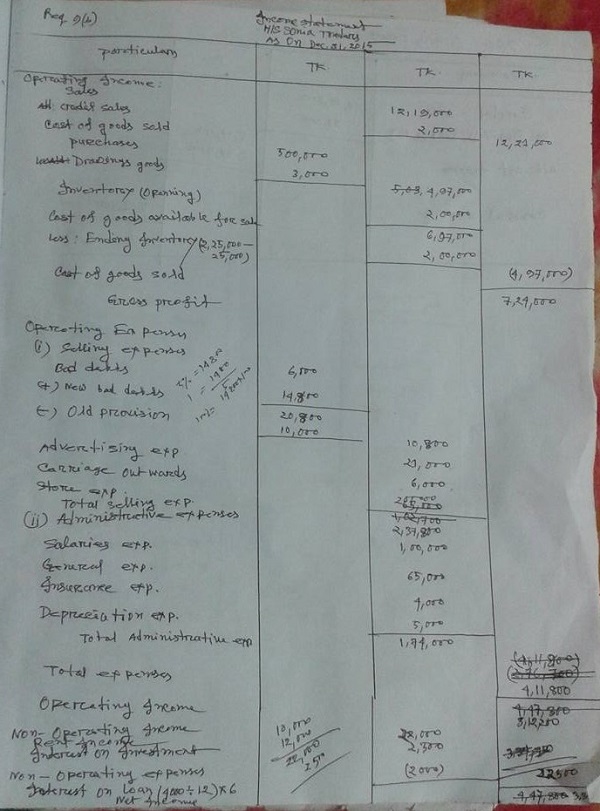 Income statement
M/S Sonia Traders
As On Dec. 31, 2015
particulars TK. TK. TK.
Operating Income:
Sales
credit sales 12,19,000
2,000 12,21,000
Cost of goods sold
purchases 500,000
Drawings goods 3,000
4,97,000
Inventory (Opening) 2,00,000
Cost of goods available for sale 6,97,000
Less: Ending Inventory (2,25,000 – 25,000) 2,00,000
Cost of goods sold (4,97,000)
Gross profit 7,24,000
Operating Expenses
(i) Selling expenses
Bad debts 6,000
(+) New bad debts 14,800
20,800
(-) Old provision 10,000
10,800
Advertising exp 21,000
Carriage outwards 6,000
Store exp.
Total Selling exp. 2,37,800
(ii) Administrative expenses
Salaries exp. 1,00,000
General exp. 65,000
Insurance exp. 4,000
Depreciation exp. 5,000
Total Administrative exp 1,74,000
Total expenses 4,11,800
Operating Income 3,12,200
Non-Operating Income 10,000
Rent Income 12,000 22,000
Interest on Investment 2,500
Non-Operating expenses (2000) 22500
Interest on loan (4000 ÷ 12) × 6
Net Income